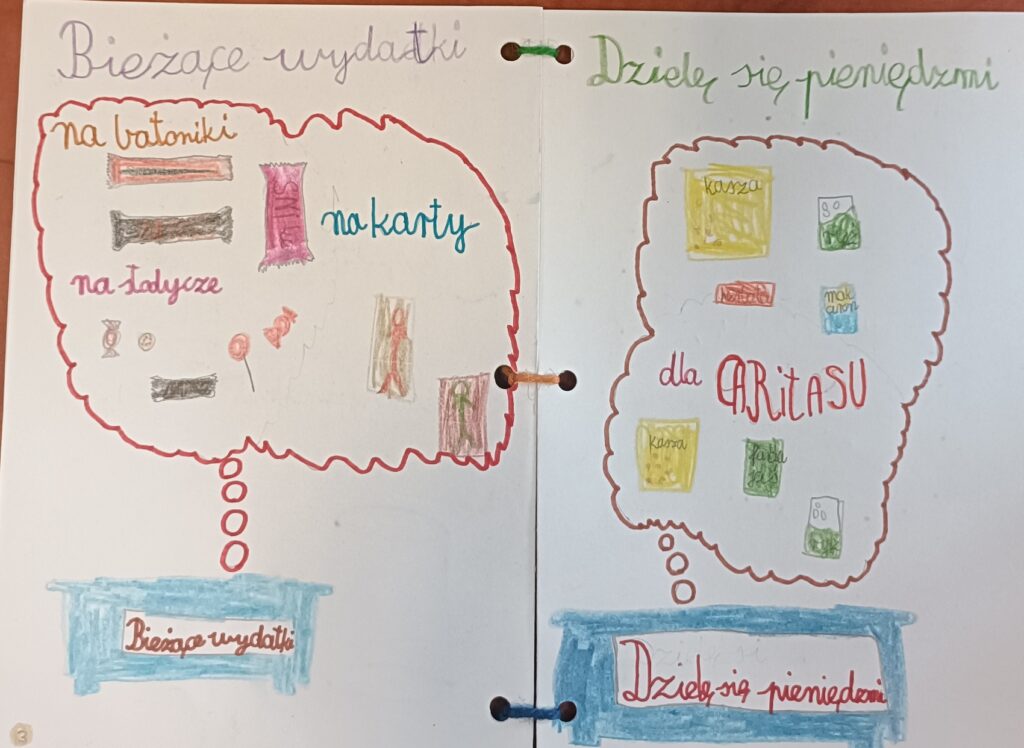 Bieżące wydatki
na batoniki
na karty
na słodycze
Bieżące wydatki
3
Dzielę się pieniędzmi
kasza
mak
aron
dla CARitASU
kasza
Dzielę się pieniędzmi